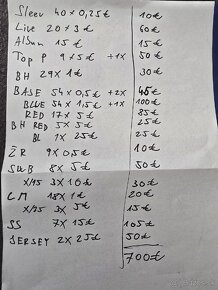 Sleev 40 x 0,25€ 10€
Live 20 x 3€ 60€
Album 15€ 15€
Top P 9 x 5€ +1x 50€
BH 29 x 1€ 30€
BASE 54 x 0,5€ +2x 45€
BLUE 54 x 1,5€ +1x 100€
RED 17 x 5€ 85€
BH RED 5 x 5€ 25€
BL 1x 25€ 25€
ZR 9 x 0,5€ 10€
SUB 8x 5€ 50€
X/15 3 x 10€ 30€
LM 18x 1€ 20€
X/25 3x 5€ 15€
SS 7x 15€ 105€
JERSEY 2x 25€ 50€
700€